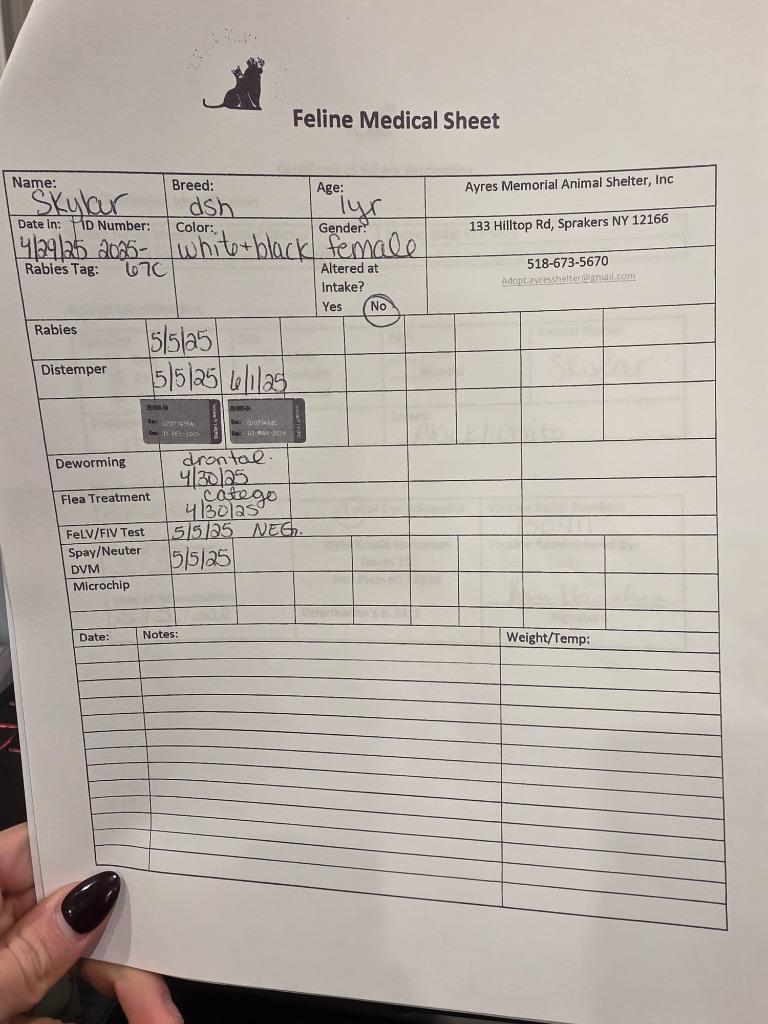 Feline Medical Sheet
Name: Skylar
Breed: dsh
Age: 1yr
Ayres Memorial Animal Shelter, Inc
Date In: 4/29/25
ID Number: 2025-67C
Color: white+black
Gender: female
133 Hilltop Rd, Sprakers NY 12166
Rabies Tag:
Altered at Intake?
Yes No
518-673-5670
Adopt.ayresshelter@gmail.com
Rabies 5/5/25
Distemper 5/5/25 6/1/25
Deworming drontal 4/30/25
Flea Treatment catego 4/30/25
FeLV/FIV Test 5/5/25 NEG.
Spay/Neuter DVM 5/5/25
Microchip
Date: Notes: Weight/Temp: